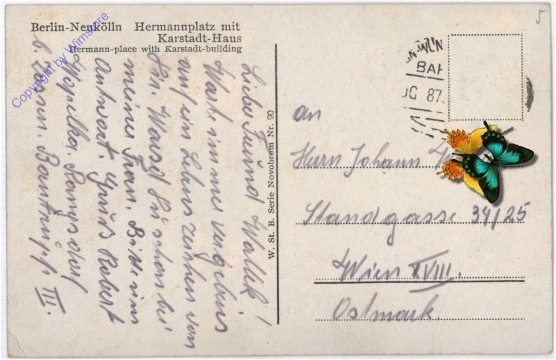 Berlin-Neukölln Hermannplatz mit
Karstadt-Haus
Hermann-place with Karstadt-building
Copyright by Wimstore
W. St. B. Serie Novobrom Nr. 90
5
BAH
87.
Liebe Freund Wallek!
Warte immer vergebens
auf ein Lebenszeichen von
Dir. Warst Du schon bei
meiner Frau. Bitte um
Antwort. Grüsst Robert
b. Bautrupp III.
An
Herrn Johann
Standgasse 34/25
Wien XVIII.
Ostmark.